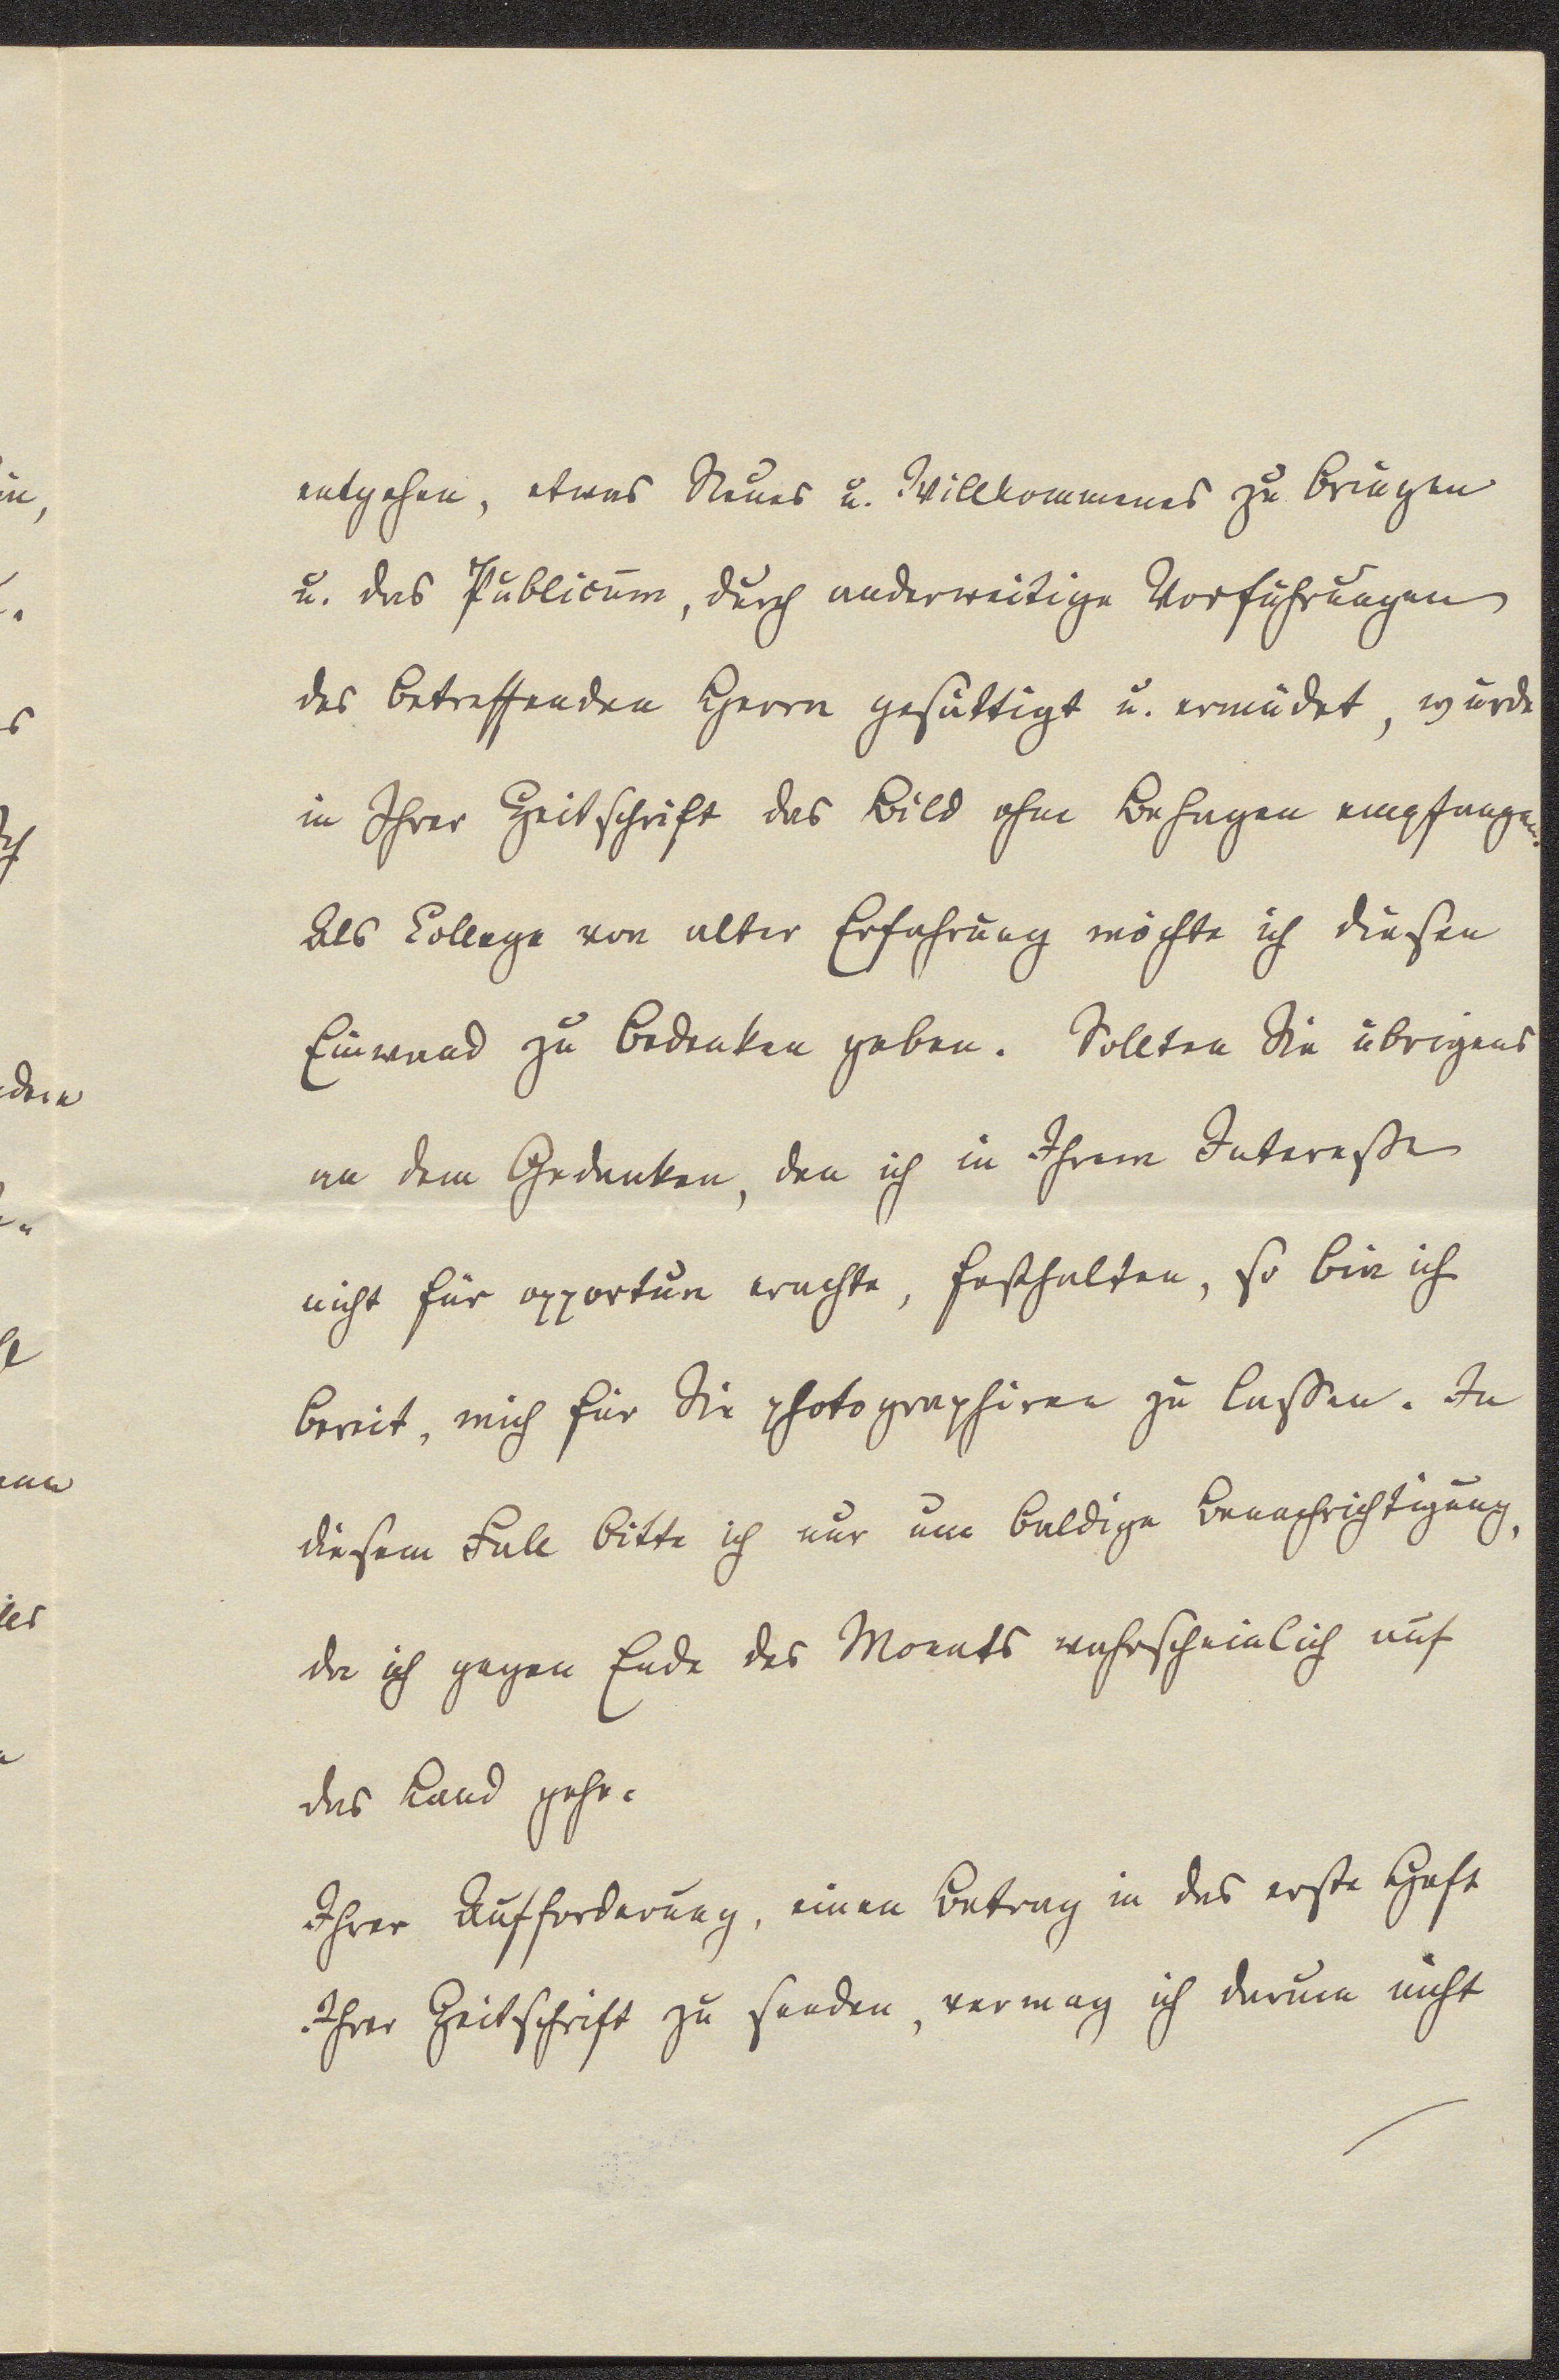 entgehen, etwas Neues u. Willkommenes zu bringen
u. das Publicum, durch anderweitige Vorführungen
des betreffenden Herrn gesättigt u. ermüdet, würde
in Ihrer Zeitschrift das Bild ohne Behagen empfangen.
Als College von alter Erfahrung möchte ich diesen
Einwand zu bedenken geben. Sollten Sie übrigens
an dem Gedanken, den ich in Ihrem Interesse
nicht für opportun erachte, festhalten, so bin ich
bereit, mich für Sie photographiren zu lassen. In
diesem Fall bitte ich nur um baldige Benachrichtigung,
da ich gegen Ende des Monats wahrscheinlich auf
das Land gehe.
Ihrer Aufforderung, einen Betrag in das erste Heft
Ihrer Zeitschrift zu senden, vermag ich darum nicht